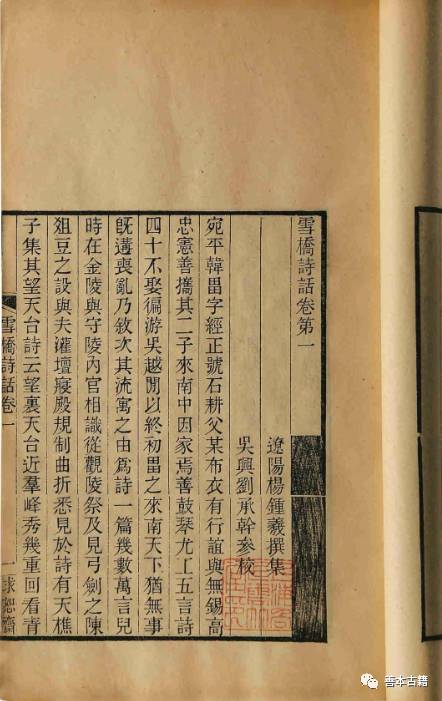 雪橋詩話卷第一
遼陽楊鍾羲撰集
吳興劉承幹參校
宛平韓畕字經正號石耕父某布衣有行誼與無錫高
忠憲善攜其二子來南中因家焉善鼓琴尤工五言詩
四十不娶徧游吳越閒以終初畕之來南天下猶無事
旣遘喪亂乃敘次其流寓之由爲詩一篇幾數萬言兒
時在金陵與守陵內官相識從觀陵祭及見弓劍之陳
俎豆之設與夫瀍壇寢殿規制曲折悉見於詩有天樵
子集其望天台詩云望裏天台近羣峰秀幾重回看青
雪橋詩話卷一
一
求恕齋
善本古籍